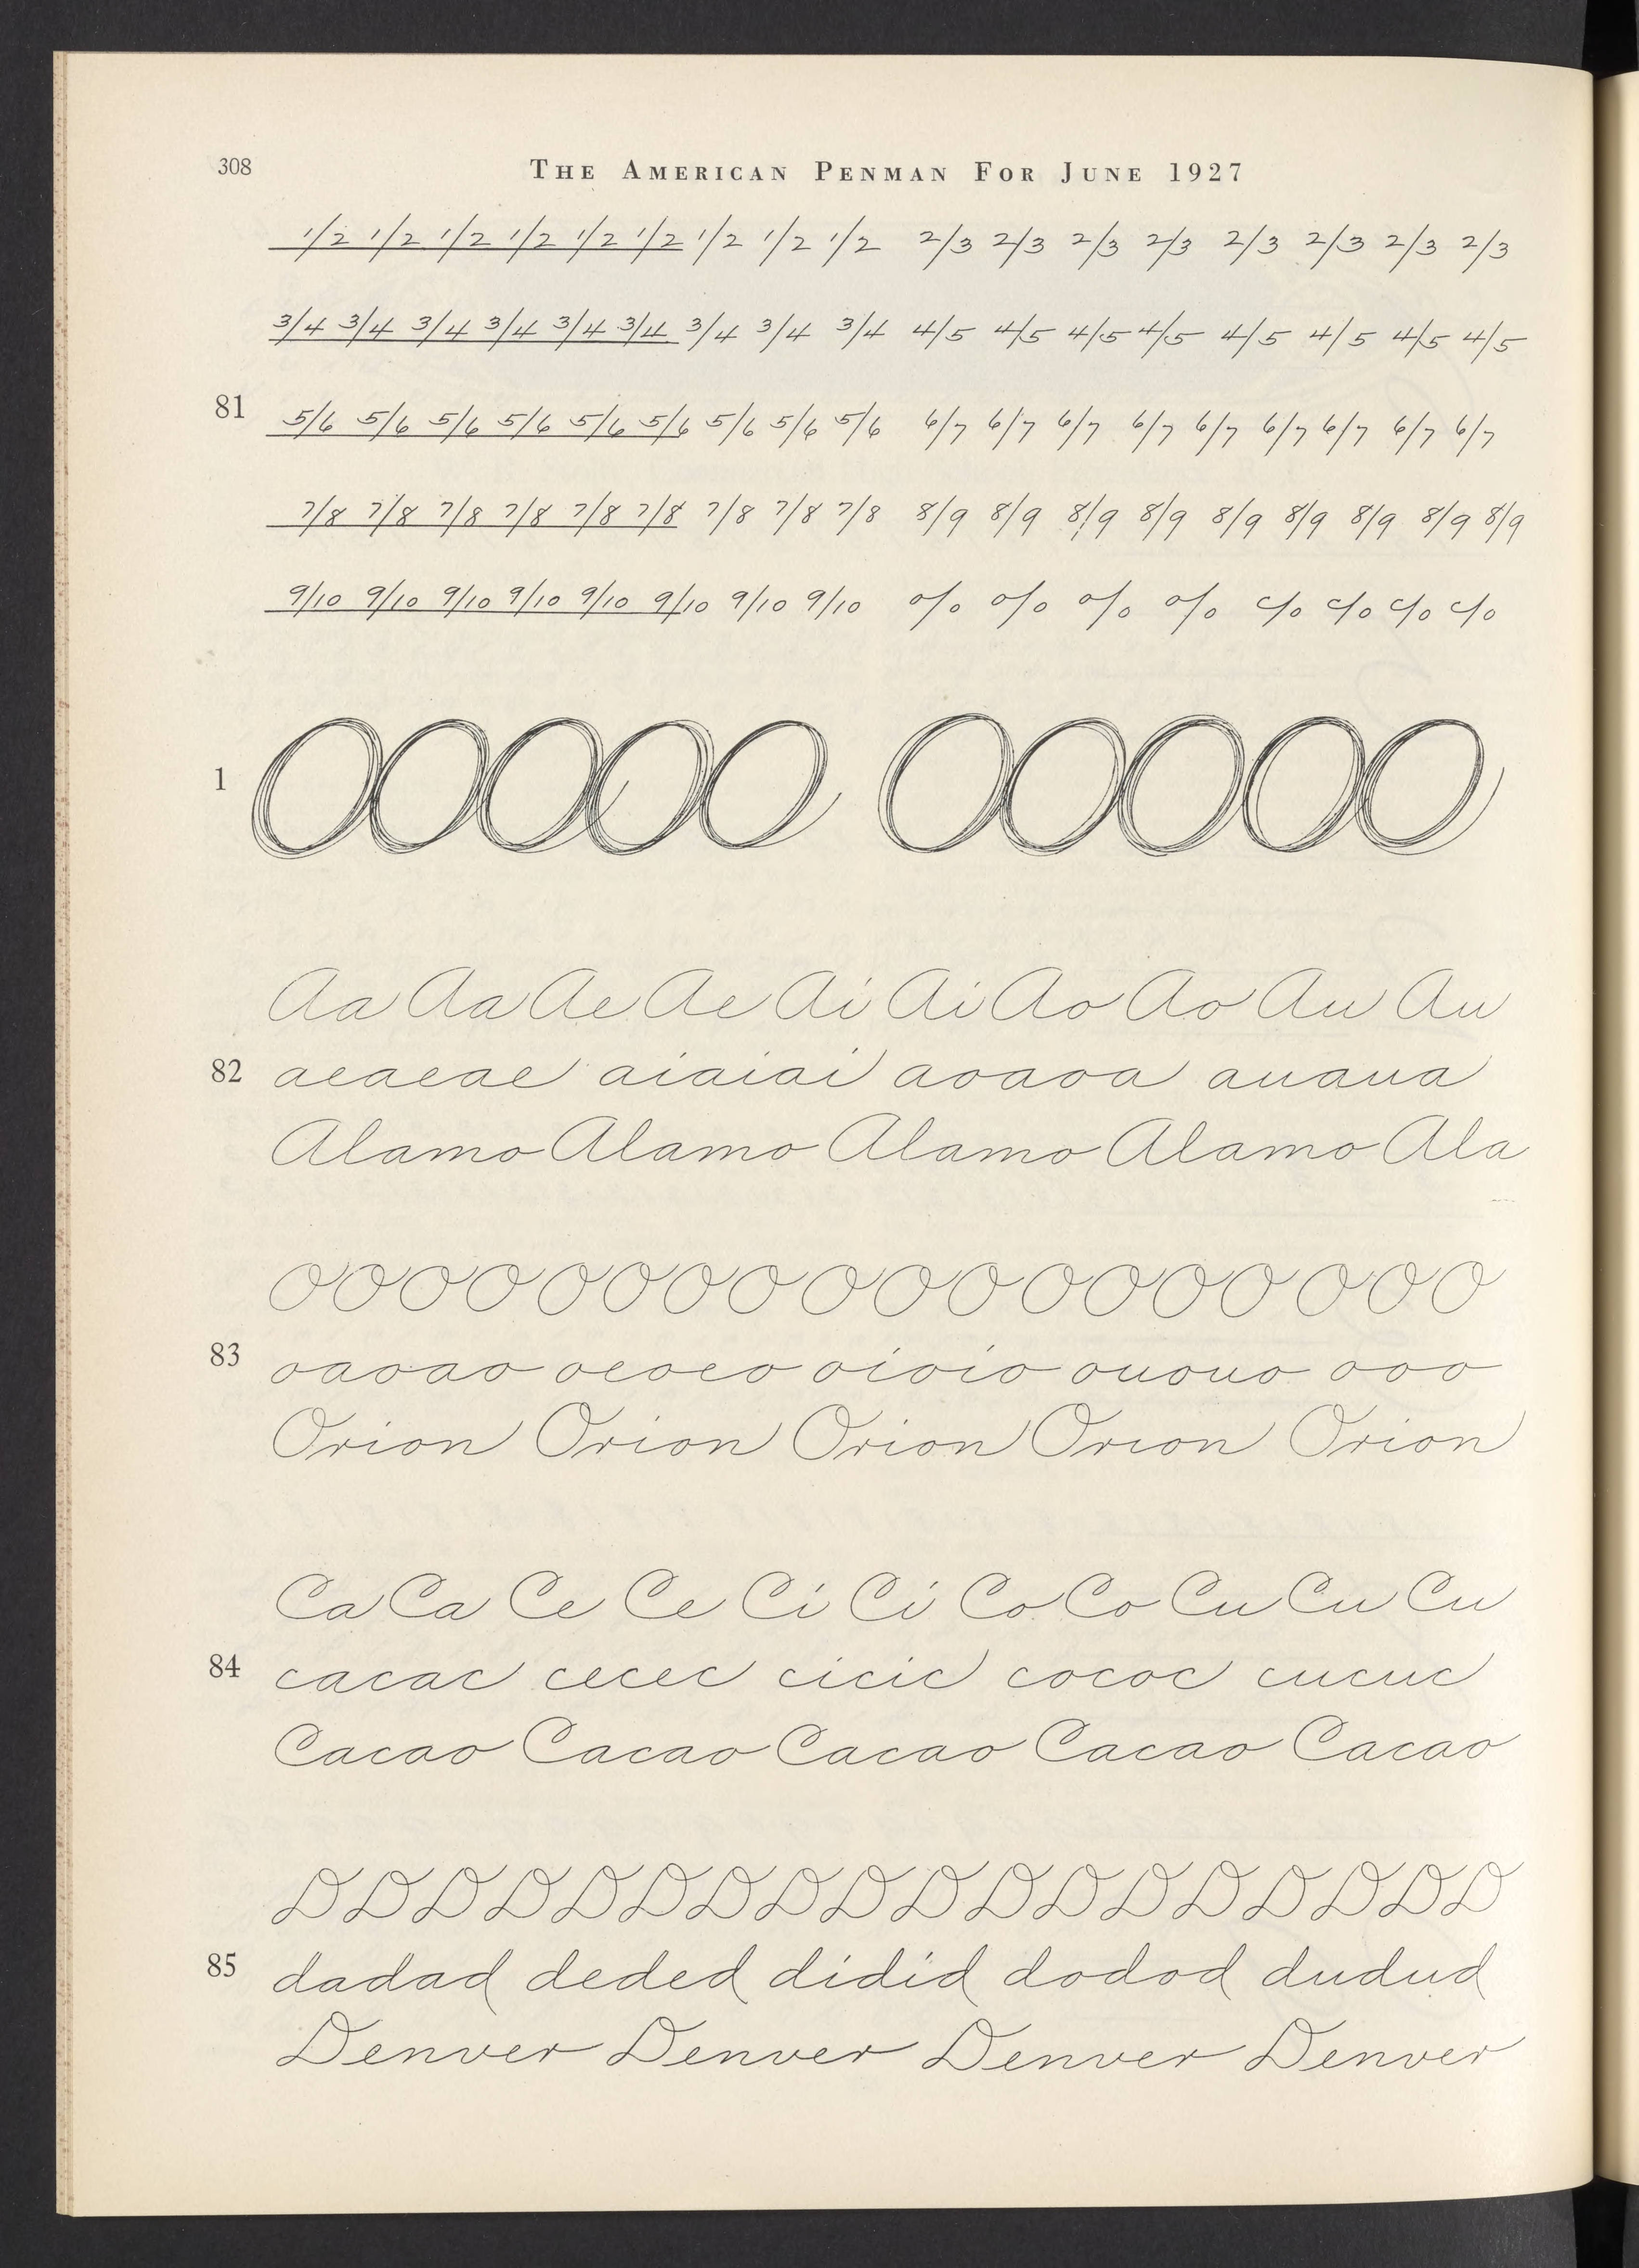 308 THE AMERICAN PENMAN FOR JUNE 1927
1/2 1/2 1/2 1/2 1/2 1/2 1/2 1/2 1/2 2/3 2/3 2/3 2/3 2/3 2/3 2/3 2/3
3/4 3/4 3/4 3/4 3/4 3/4 3/4 3/4 3/4 4/5 4/5 4/5 4/5 4/5 4/5 4/5 4/5
81 5/6 5/6 5/6 5/6 5/6 5/6 5/6 5/6 5/6 6/7 6/7 6/7 6/7 6/7 6/7 6/7 6/7 6/7
7/8 7/8 7/8 7/8 7/8 7/8 7/8 7/8 7/8 8/9 8/9 8/9 8/9 8/9 8/9 8/9 8/9 8/9
9/10 9/10 9/10 9/10 9/10 9/10 9/10 9/10 % % % % c/o c/o c/o c/o
1 OOOOO OOOOO
Aa Aa Ae Ae Ai Ai Ao Ao Au Au
82 aeaeae aiaiai aoaoa auaua
Alamo Alamo Alamo Alamo Ala
O O O O O O O O O O O O O O O O O O
83 oaoao oeoeo oioio ououo ooo
Orion Orion Orion Orion Orion
Ca Ca Ce Ce Ci Ci Co Co Cu Cu Cu
84 cacac cecec cicic cococ cucuc
Cacao Cacao Cacao Cacao Cacao
D D D D D D D D D D D D D D D D D D
85 dadad deded didid dodod dudud
Denver Denver Denver Denver